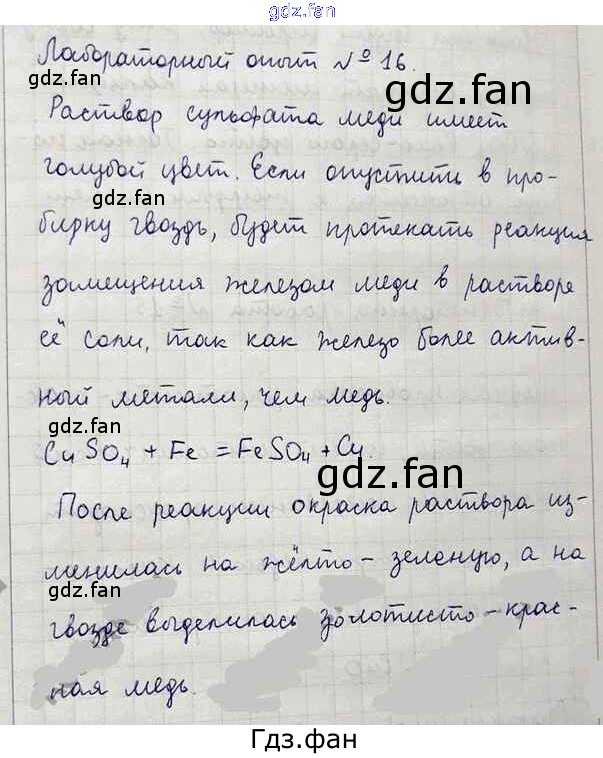 gdz.fan
Лабораторный опыт № 16.
gdz.fan
gdz.fan
Раствор сульфата меди имеет
голубой цвет. Если опустить в про-
gdz.fan
бирку гвоздь, будет протекать реакция
замещения железом меди в растворе
gdz.fan
её соли, так как железо более актив-
ный металл, чем медь.
gdz.fan
CuSO4 + Fe = FeSO4 + Cu
gdz.fan
После реакции окраска раствора из-
менилась на жёлто-зеленую, а на
gdz.fan
гвозде выделилась золотисто-крас-
gdz.fan
ная медь.
Гдз.фан